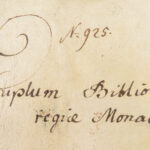 N. 925.
uplum Biblio
regiæ Mona